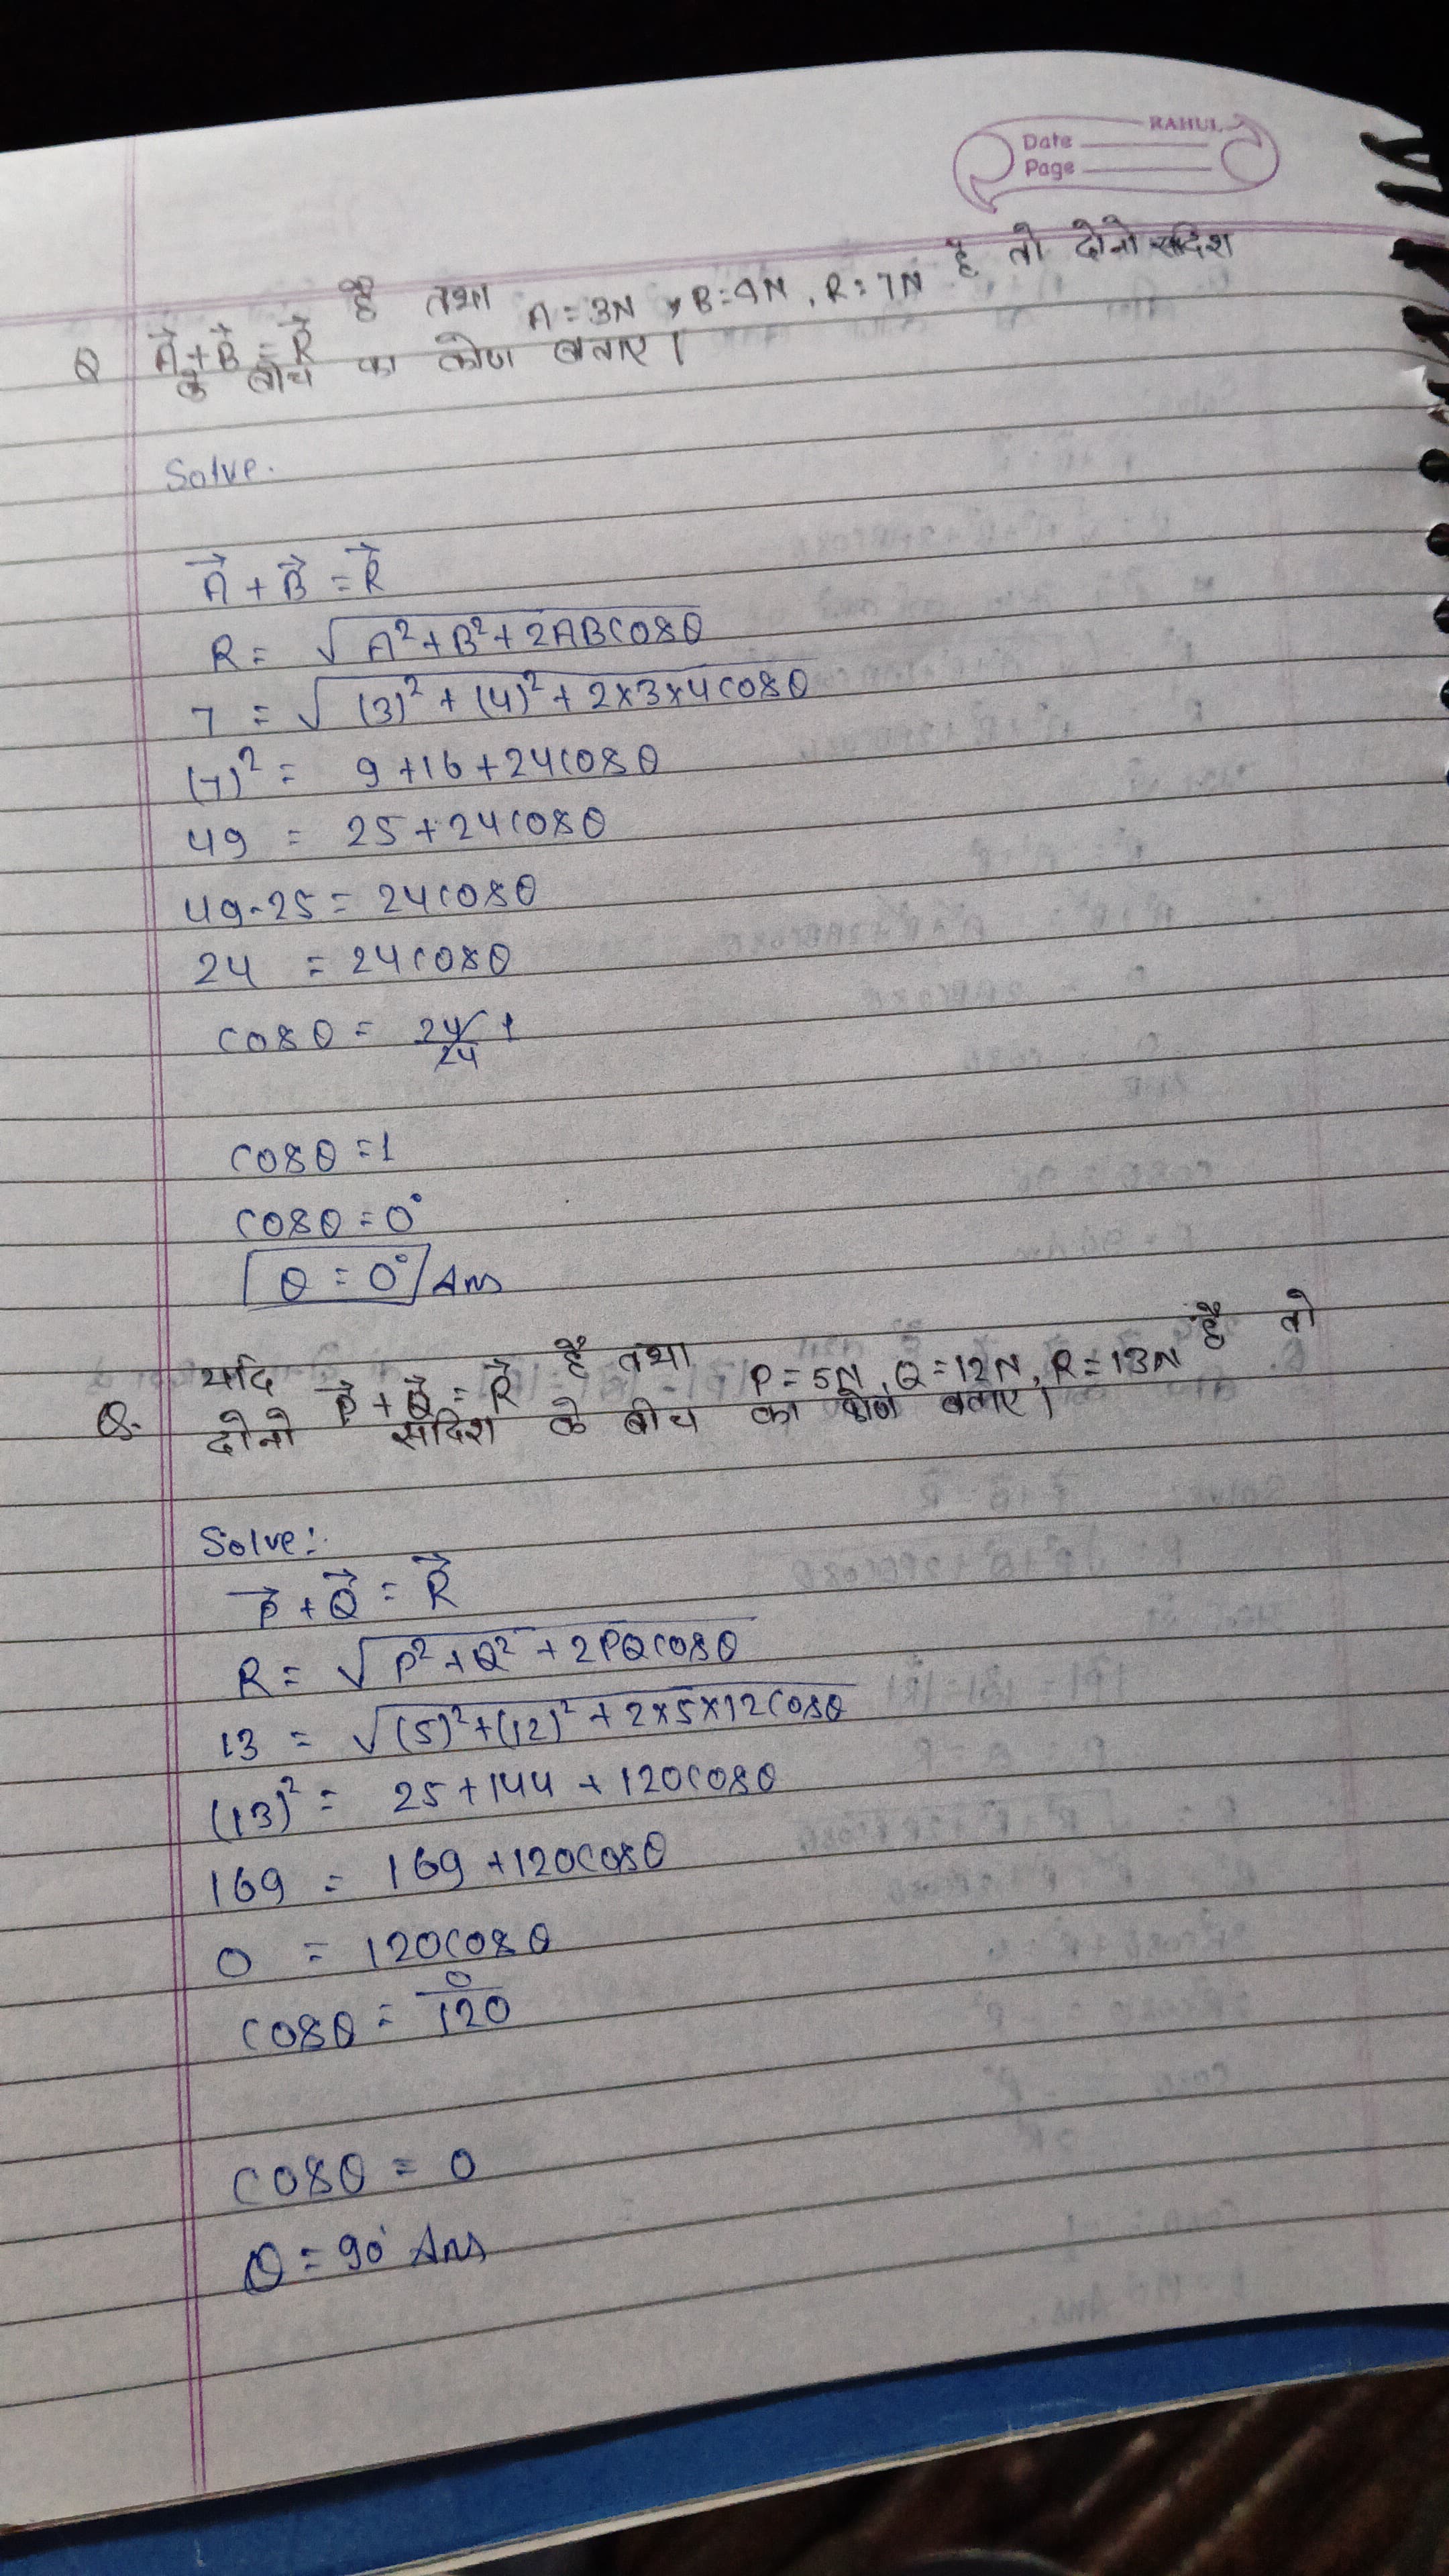 RAHUL
Date
Page
Q \vec{A}+\vec{B}=\vec{R} है तथा A=3N, B=4N, R=7N है तो दोनो सदिश
के बीच का कोण बताए।
Solve.
\vec{A}+\vec{B}=\vec{R}
R= √A²+B²+2ABcosθ
7 = √(3)²+(4)²+2×3×4cosθ
(7)² = 9+16+24cosθ
49 = 25+24cosθ
49-25 = 24cosθ
24 = 24cosθ
cosθ = 24/24 1
cosθ =1
cosθ =0°
θ = 0° Ans
Q. यदि \vec{P}+\vec{Q}=\vec{R} है तथा P=5N, Q=12N, R=13N है तो
दोनो सदिश के बीच का कोण बताए।
Solve:
\vec{P}+\vec{Q}=\vec{R}
R= √P²+Q²+2PQcosθ
13 = √(5)²+(12)²+2×5×12cosθ
(13)² = 25+144+120cosθ
169 = 169+120cosθ
0 = 120cosθ
cosθ = 0/120
cosθ = 0
θ = 90° Ans